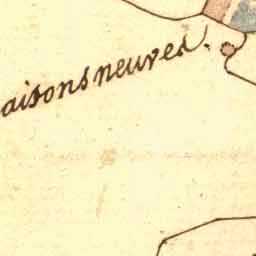 aisons neuves.